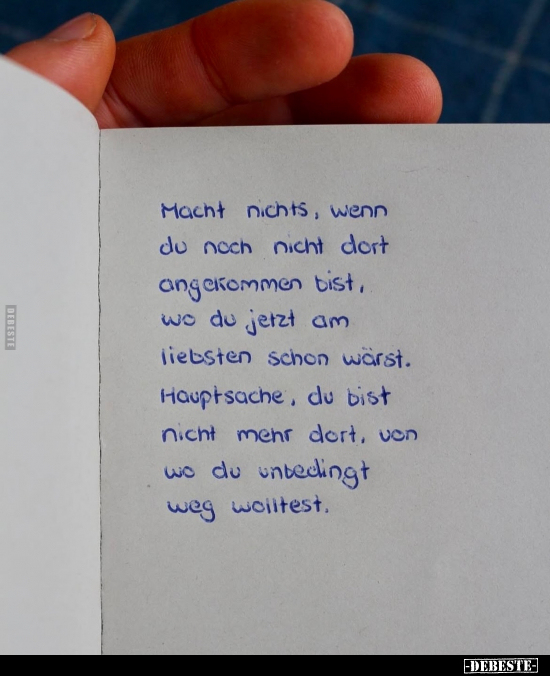 Macht nichts, wenn
du noch nicht dort
angekommen bist,
wo du jetzt am
liebsten schon wärst.
Hauptsache, du bist
nicht mehr dort, von
wo du unbedingt
weg wolltest.
DEBESTE
-DEBESTE-